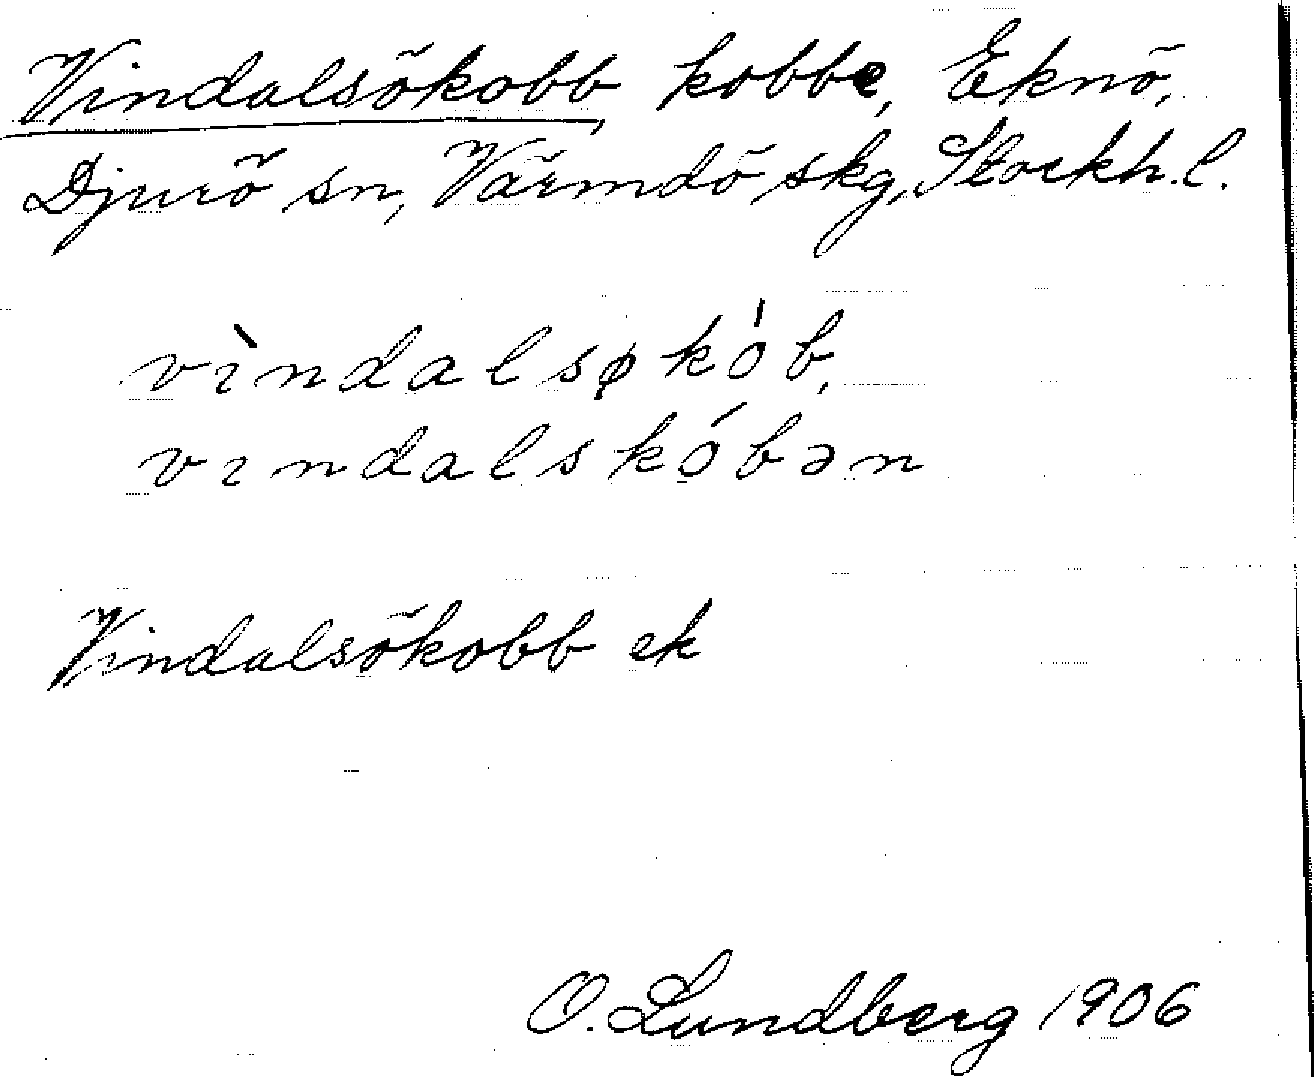 Vindalsökobb, kobbe, Eknö,
Djurö sn, Värmdö skg, Stockh. l.
vìndalsøkób,
vındalskóbən
Vindalsökobb ek
O. Lundberg 1906